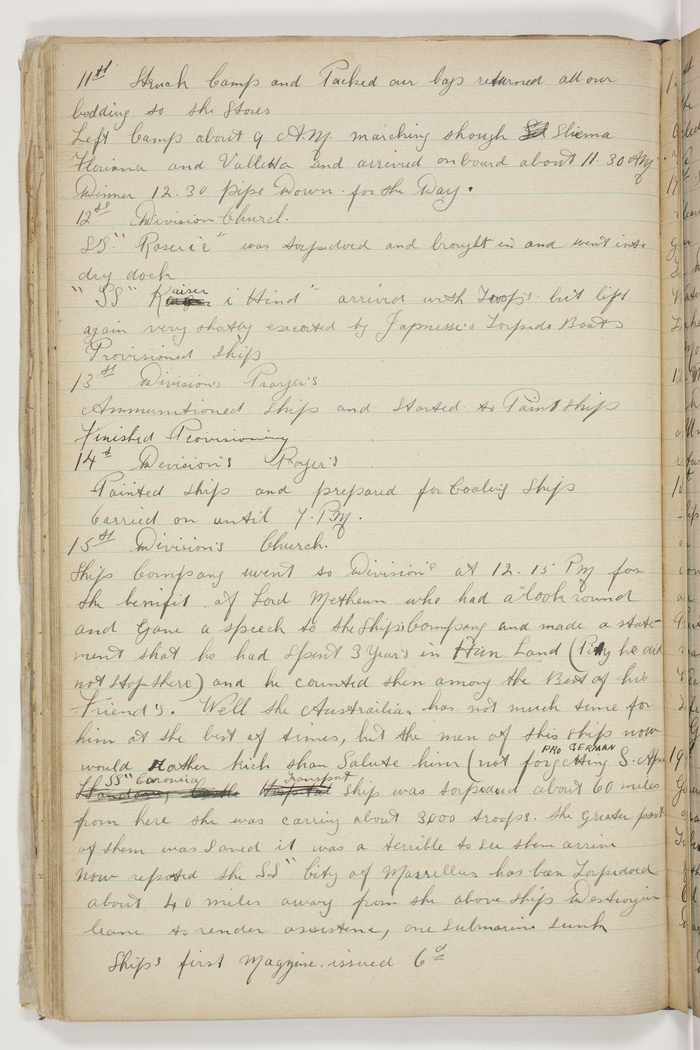 11th Struck Camp and Packed our bags returned all our
bedding to the Stores
Left Camp about 9 A.M. marching though Sliema
Floriana and Valletta and arrived onboard about 11.30 AM
Dinner 12.30 pipe Down for the Day.
12th Division Church.
SS "Roserie" was torpedoed and brought in and went into
dry dock
"SS" Kaiser i Hind" arrived with Troop's but left
again very shortly escorted by Japnesse's Torpedo Boats
Provisioned Ship
13th Divisions Prayer's
Ammunitioned Ship and Started to Paint Ship
Finished Provisioning
14th Devision's Prayer's
Painted Ship and prepared for Coaling Ship
Carried on until 7. PM.
15th Division's Church.
Ships Company went to Division's at 12.15 PM for
the benifit of Lord Metheun who had a look round
and gave a speech to the Ships Company and made a state-
ment that he had Spent 3 Year's in Hun Land (Pity he did
not stop there) and he counted them among the Best of his
Friend's. Well the Austrailian has not much time for
him at the best of times, but the men of this ship now
would Rather kick than Salute him (not forgetting PRO GERMAN S. Afri
"SS" Cameronia Transport Ship was torpedoed about 60 miles
from here she was carrying about 3000 troops. the greater part
of them was saved it was a terrible to see them arrive
Now reported the SS" City of Massrellus has been Torpedoed
about 40 miles away from the above ship Destroyin
leave to render assistene, one Submarine sunk
Ship's first Magzine issued 6d